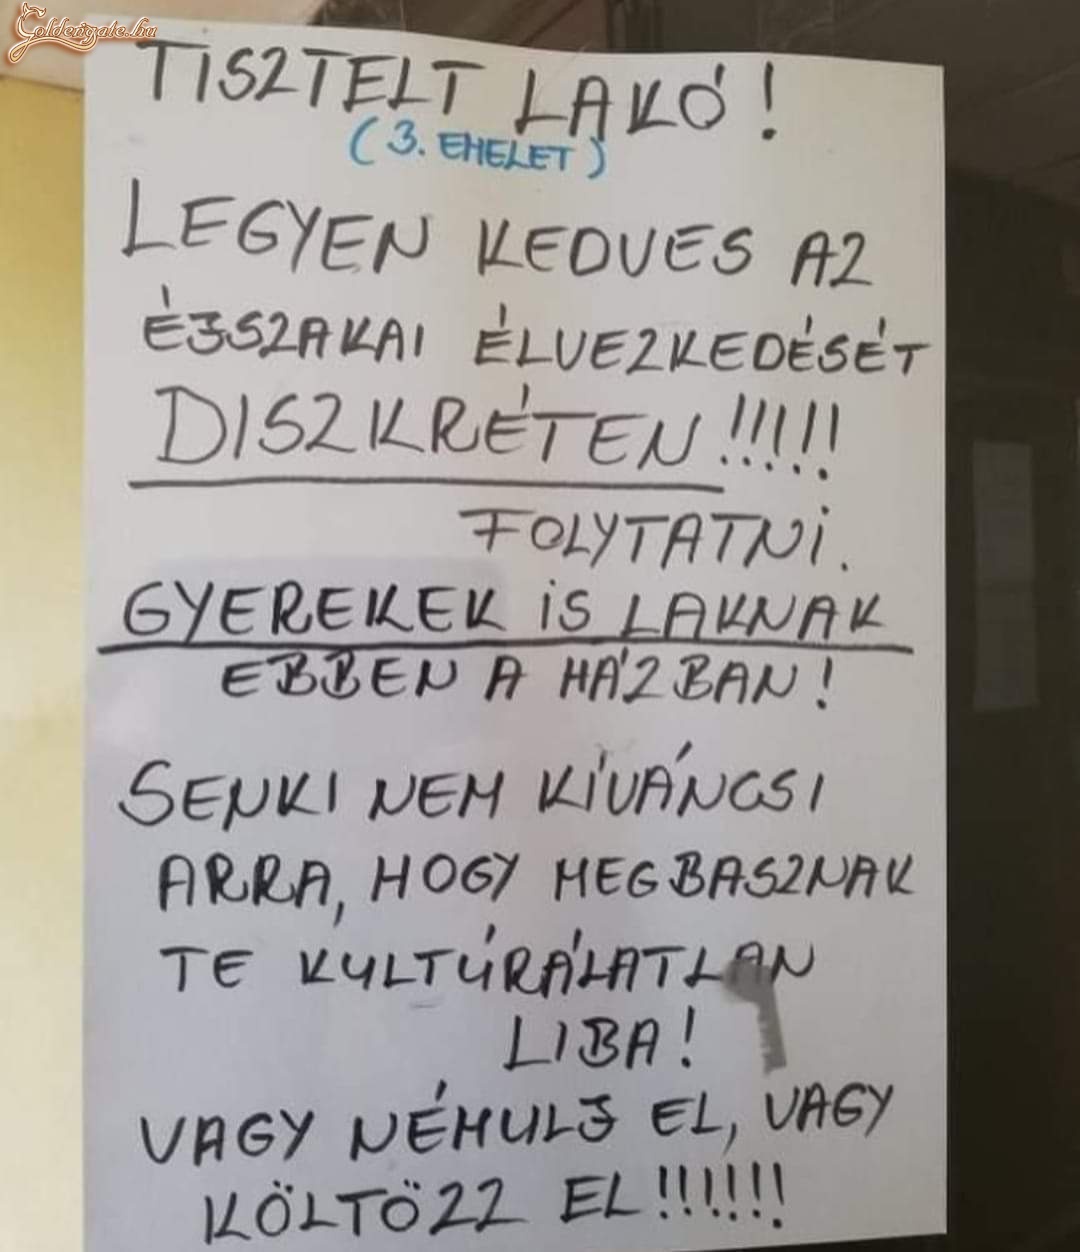 Goldengate.hu
TISZTELT LAKÓ!
(3. EMELET)
LEGYEN KEDVES AZ
ÉJSZAKAI ÉLVEZKEDÉSÉT
DISZKRÉTEN!!!!!
FOLYTATNi.
GYEREKEK iS LAKNAK
EBBEN A HÁZBAN!
SENKI NEM KÍVÁNCSI
ARRA, HOGY MEGBASZNAK
TE KULTÚRÁLATLAN
LIBA!
VAGY NÉMULJ EL, VAGY
KÖLTÖZZ EL!!!!!!